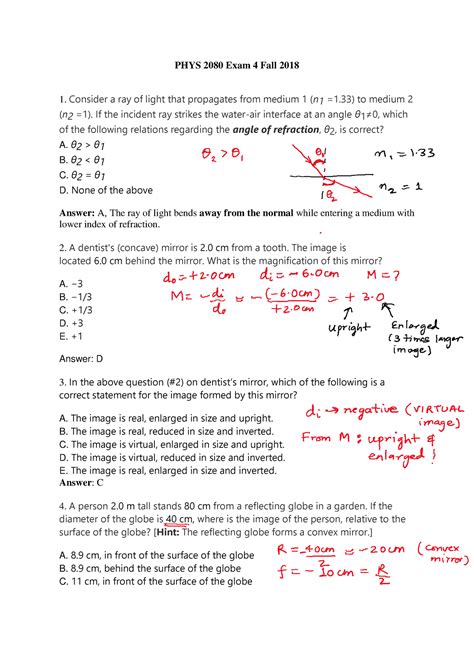 PHYS 2080 Exam 4 Fall 2018
1. Consider a ray of light that propagates from medium 1 (n1 =1.33) to medium 2
(n2 =1). If the incident ray strikes the water-air interface at an angle θ1≠0, which
of the following relations regarding the angle of refraction, θ2, is correct?
A. θ2 > θ1
B. θ2 < θ1
C. θ2 = θ1
D. None of the above
θ2 > θ1
θ1
n1 = 1.33
θ2
n2 = 1
Answer: A, The ray of light bends away from the normal while entering a medium with
lower index of refraction.
2. A dentist's (concave) mirror is 2.0 cm from a tooth. The image is
located 6.0 cm behind the mirror. What is the magnification of this mirror?
A. −3
B. −1/3
C. +1/3
D. +3
E. +1
do = +2.0cm di = − 6.0cm M = ?
M = −di/do = −(−6.0cm)/+2.0cm = + 3.0
Upright
Enlarged
(3 times larger
image)
Answer: D
3. In the above question (#2) on dentist's mirror, which of the following is a
correct statement for the image formed by this mirror?
A. The image is real, enlarged in size and upright.
B. The image is real, reduced in size and inverted.
C. The image is virtual, enlarged in size and upright.
D. The image is virtual, reduced in size and inverted.
E. The image is real, enlarged in size and inverted.
Answer: C
di → negative (VIRTUAL
image)
From M : upright &
enlarged !
4. A person 2.0 m tall stands 80 cm from a reflecting globe in a garden. If the
diameter of the globe is 40 cm, where is the image of the person, relative to the
surface of the globe? [Hint: The reflecting globe forms a convex mirror.]
A. 8.9 cm, in front of the surface of the globe
B. 8.9 cm, behind the surface of the globe
C. 11 cm, in front of the surface of the globe
R = −40cm/2 = −20cm (convex
mirror)
f = − 10cm = R/2